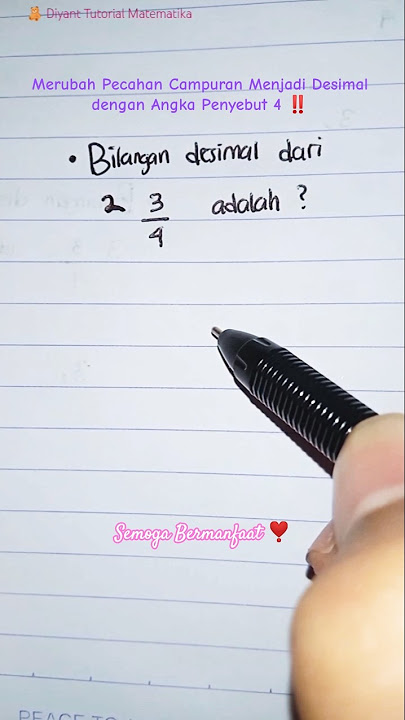 🧸 Diyant Tutorial Matematika
Merubah Pecahan Campuran Menjadi Desimal
dengan Angka Penyebut 4 ‼️
• Bilangan desimal dari
2 3/4 adalah ?
Semoga Bermanfaat ❣️
PEACE TO